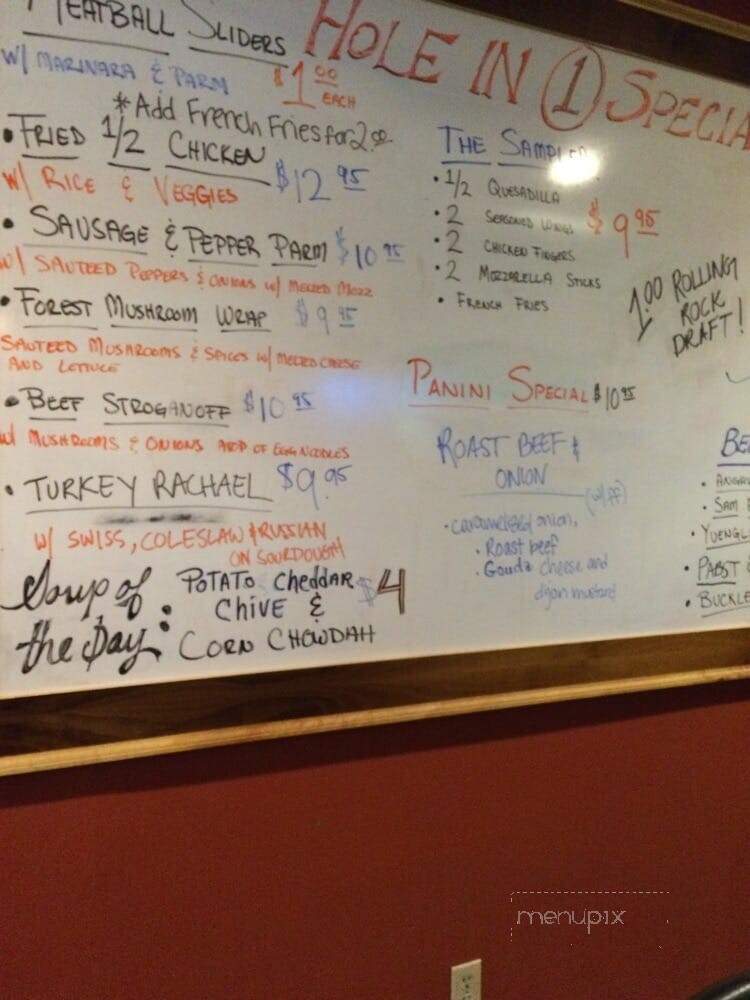 MEATBALL SLIDERS
W/ MARINARA & PARM $1.00 EACH
*Add French Fries for 2.00
• FRIED 1/2 CHICKEN $12.95
W/ RICE & VEGGIES
• SAUSAGE & PEPPER PARM $10.95
W/ SAUTEED PEPPERS & ONIONS W/ MELTED MOZZ
• FOREST MUSHROOM WRAP $9.95
SAUTEED MUSHROOMS & SPICES W/ MELTED CHEESE
AND LETTUCE
• BEEF STROGANOFF $10.95
W/ MUSHROOMS & ONIONS ATOP OF EGG NOODLES
• TURKEY RACHAEL $9.95
W/ SWISS, COLESLAW & RUSSIAN
ON SOURDOUGH
Soup of the Day:
POTATO Cheddar $4
CHIVE &
CORN CHOWDAH
HOLE IN 1 SPECIA
THE SAMPLER
• 1/2 QUESADILLA
• 2 SEASONED WINGS $9.95
• 2 CHICKEN FINGERS
• 2 MOZZARELLA STICKS
• FRENCH FRIES
1.00 ROLLING
ROCK
DRAFT!
PANINI SPECIAL $10.95
ROAST BEEF &
ONION
(w/ff)
• caramelized onion,
• Roast beef
• Gouda cheese and
dijon mustard
BE
•
• SAM
• YUENGL
• PABST
• BUCKLE
menupix